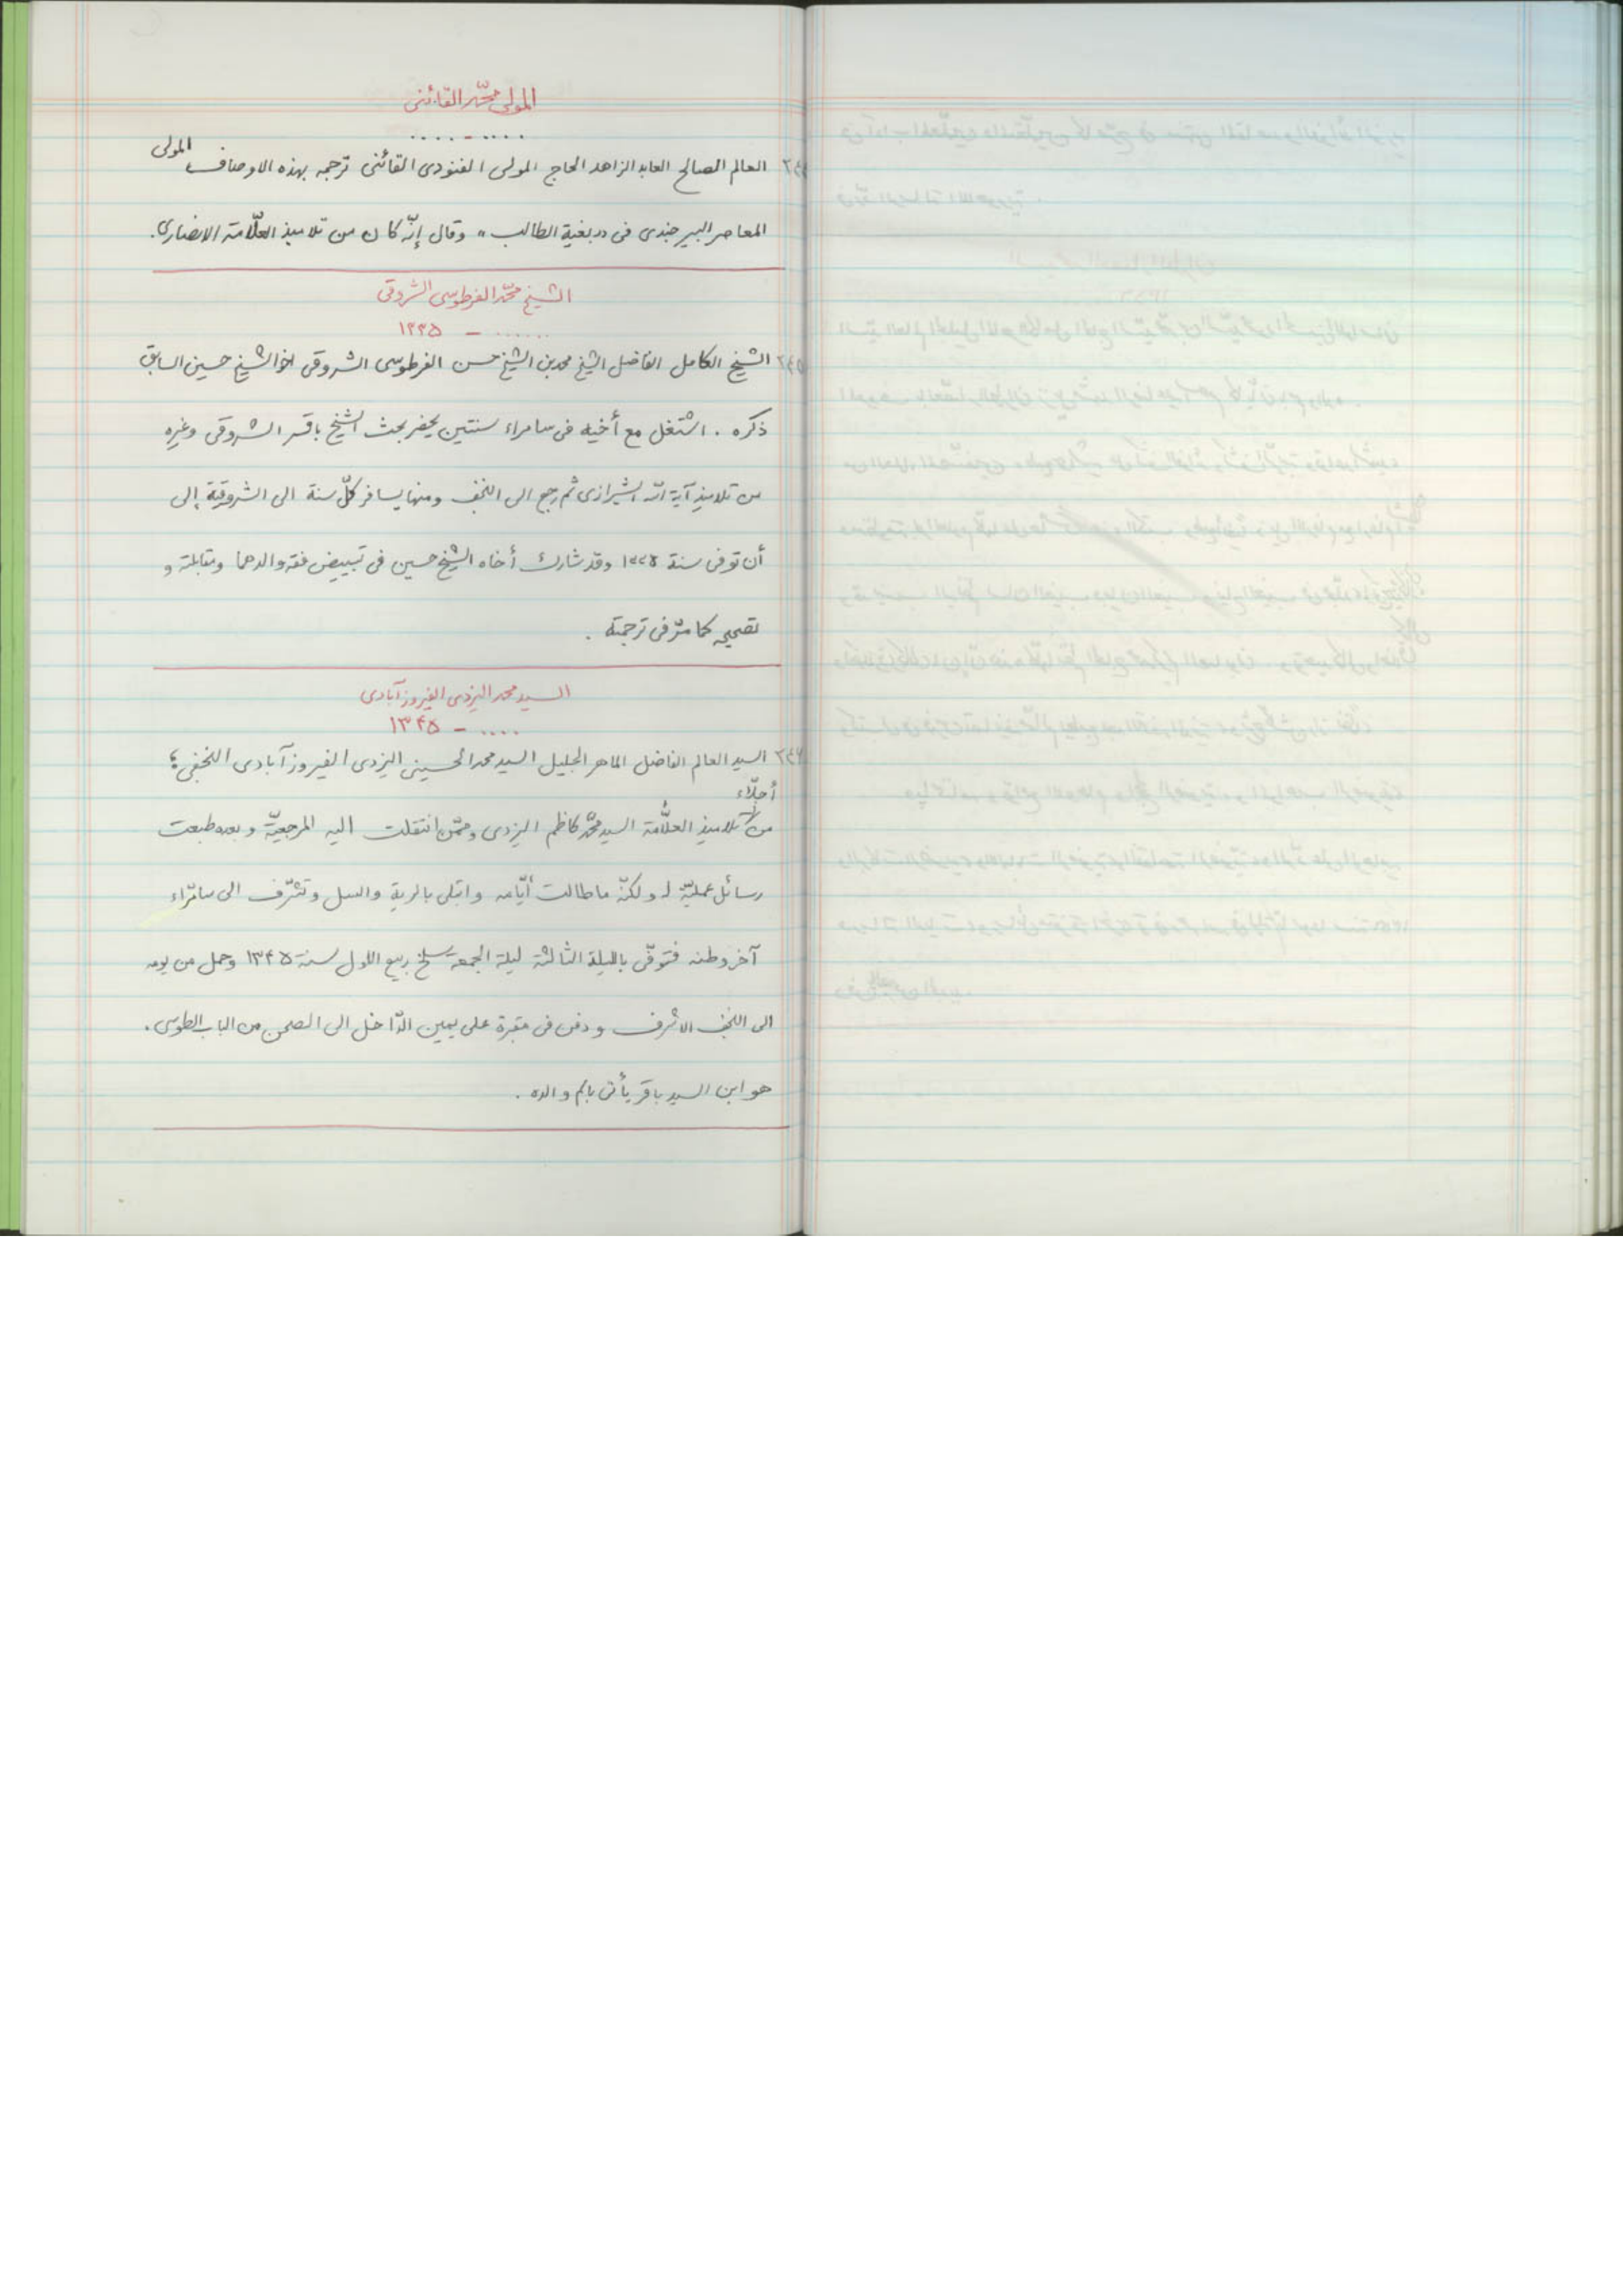 المولى محمّد القائنى
.... - ....
٢٤٤ العالم الصالح العابد الزاهد الحاج المولى الفنودى القائنى ترجمه بهذه الاوصاف المولى
المعاصر البيرجندى فى «بغية الطالب» وقال إنّه كان من تلاميذ العلّامة الانصارى.
الشيخ محمّد الفرطوسى الشروقى
...... - ١٣٣٥
٢٤٥ الشيخ الكامل الفاضل الشيخ محمد بن الشيخ حسن الفرطوسى الشروقى اخو الشيخ حسين السابق
ذكره . اشتغل مع أخيه فى سامراء سنتين يحضر بحث الشيخ باقر الشروقى وغيره
من تلاميذ آية الله الشيرازى ثم رجع الى النجف ومنها يسافر كلّ سنة الى الشروقية إلى
أن توفى سنة ١٣٣٥ وقد شارك أخاه الشيخ حسين فى تبييض فقه والدهما ومقابلته و
تصحيحه كما مرّ فى ترجمته .
السيد محمد اليزدى الفيروزآبادى
.... - ١٣٤٥
٢٤٦ السيد العالم الفاضل الماهر الجليل السيد محمد الحسينى اليزدى الفيروزآبادى النجفى؛
من أجلّاء تلاميذ العلّامة السيد محمّد كاظم اليزدى وممّن انتقلت اليه المرجعيّة وبعده طبعت
رسائل عمليّة له ولكنّه ما طالت أيّامه وابتلى بالرية والسل وتشرّف الى سامّراء
آخر وطنه فتوفّى بالليلة الثالثة ليلة الجمعة سلخ ربيع الاول سنة ١٣٤٥ وحمل من يومه
الى النجف الاشرف ودفن فى مقبرة على يمين الدّاخل الى الصحن من الباب الطوسى .
هو ابن السيد باقر يأتى باسم والده .